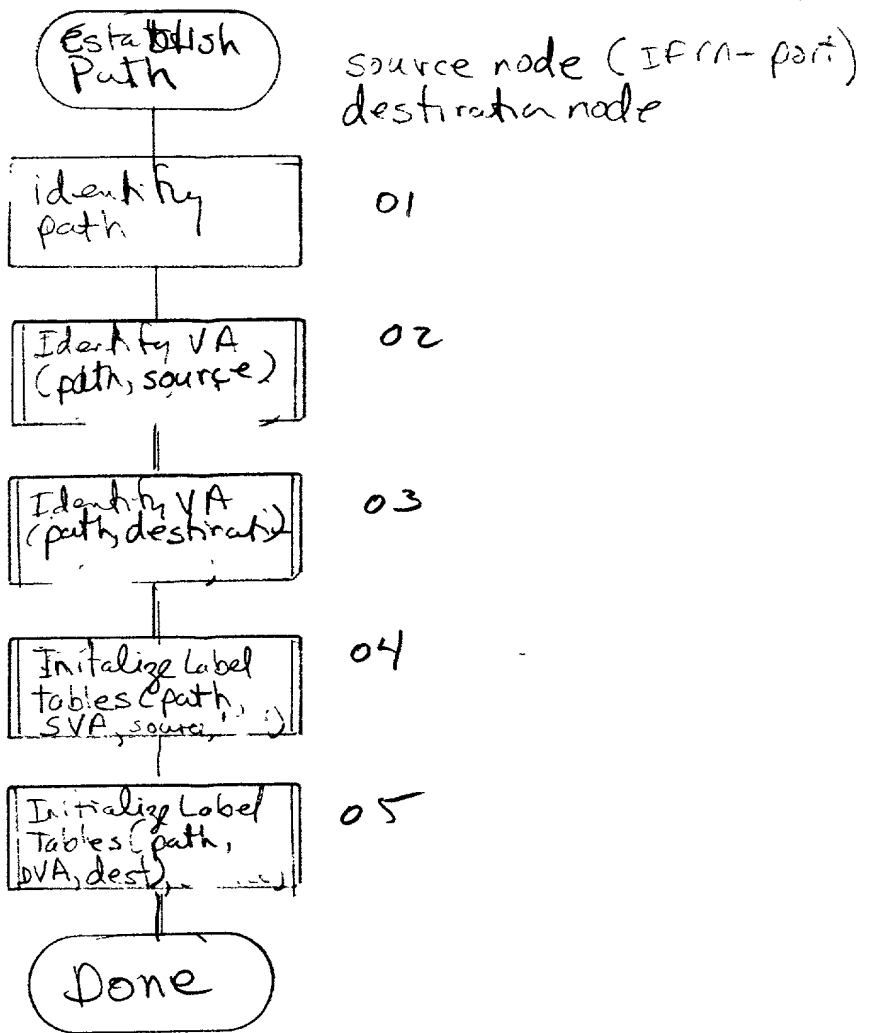 Establish
Path
source node (
destination node
identify
path
01
Identify VA
(path, source)
02
Identify VA
(path, destinati)
03
Initalize Label
tables (path,
SVA, source,
04
Initialize Label
Tables (path,
DVA, dest),
05
Done